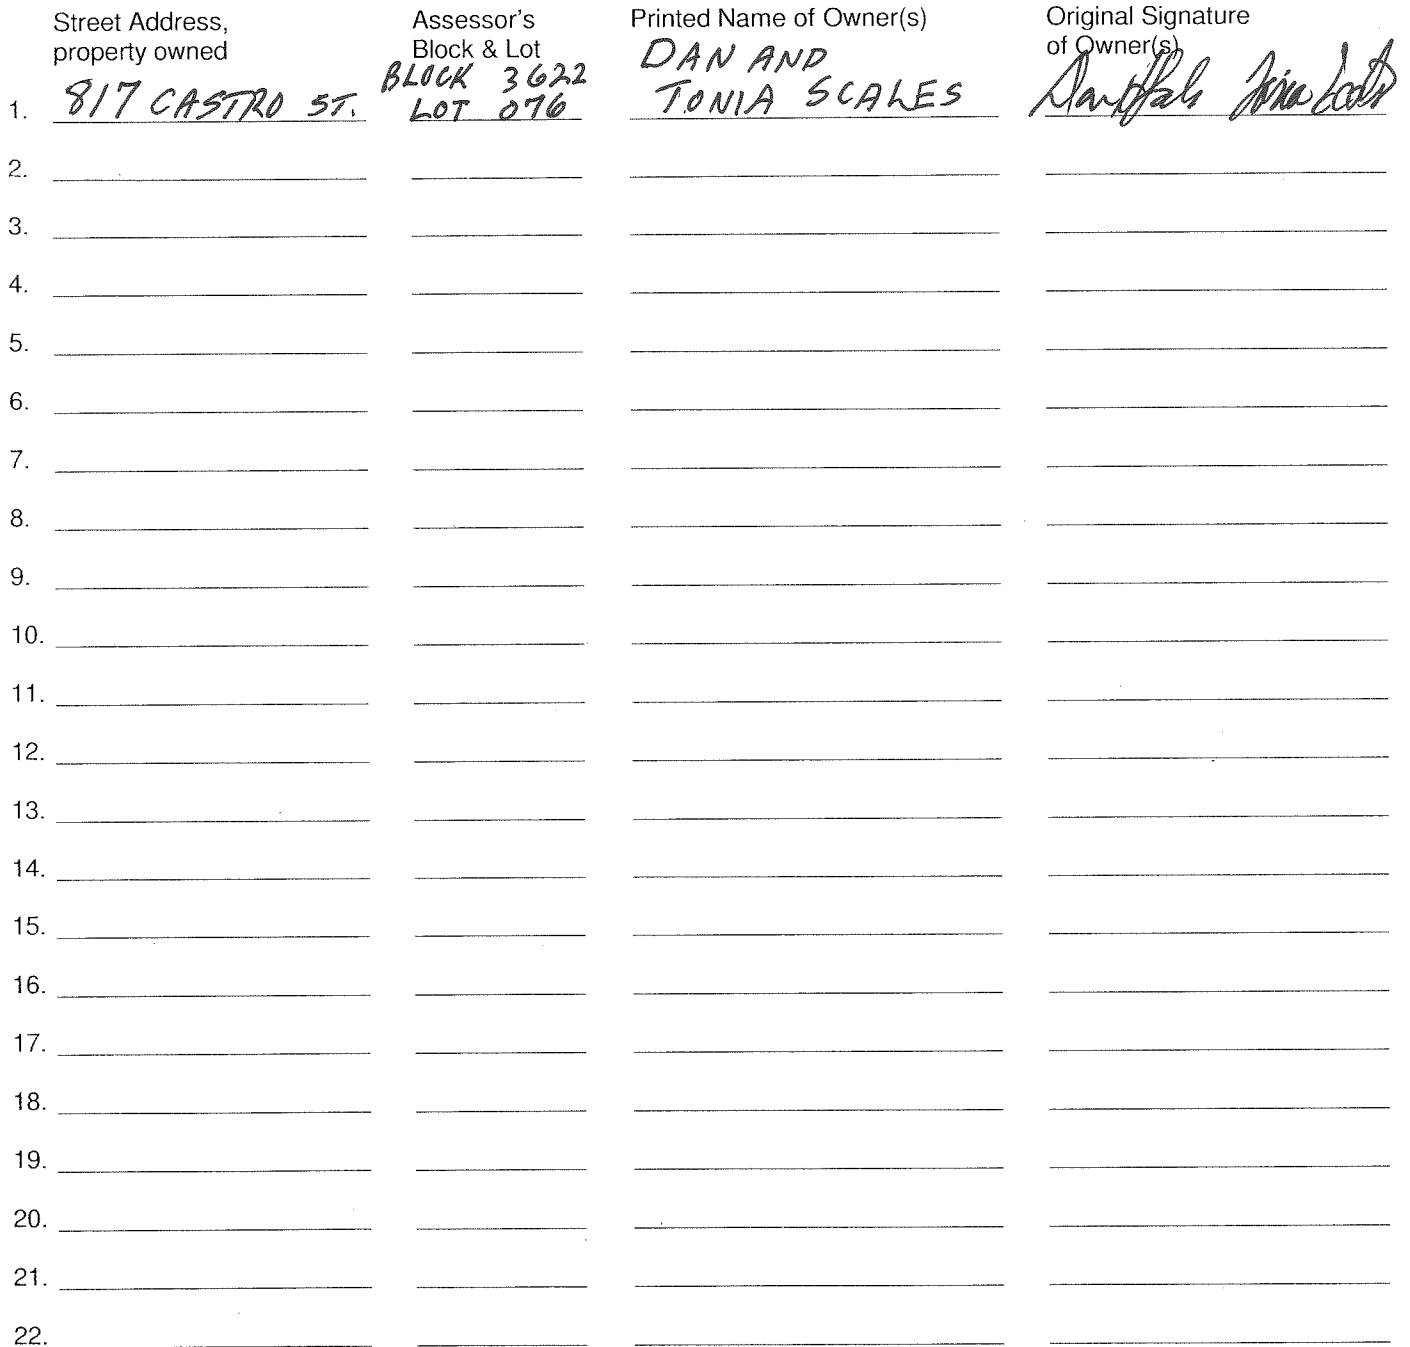 Street Address,
property owned
Assessor's
Block & Lot
Printed Name of Owner(s)
Original Signature
of Owner(s)
1. 817 CASTRO ST.
BLOCK 3622
LOT 076
DAN AND
TONIA SCALES
2.
3.
4.
5.
6.
7.
8.
9.
10.
11.
12.
13.
14.
15.
16.
17.
18.
19.
20.
21.
22.